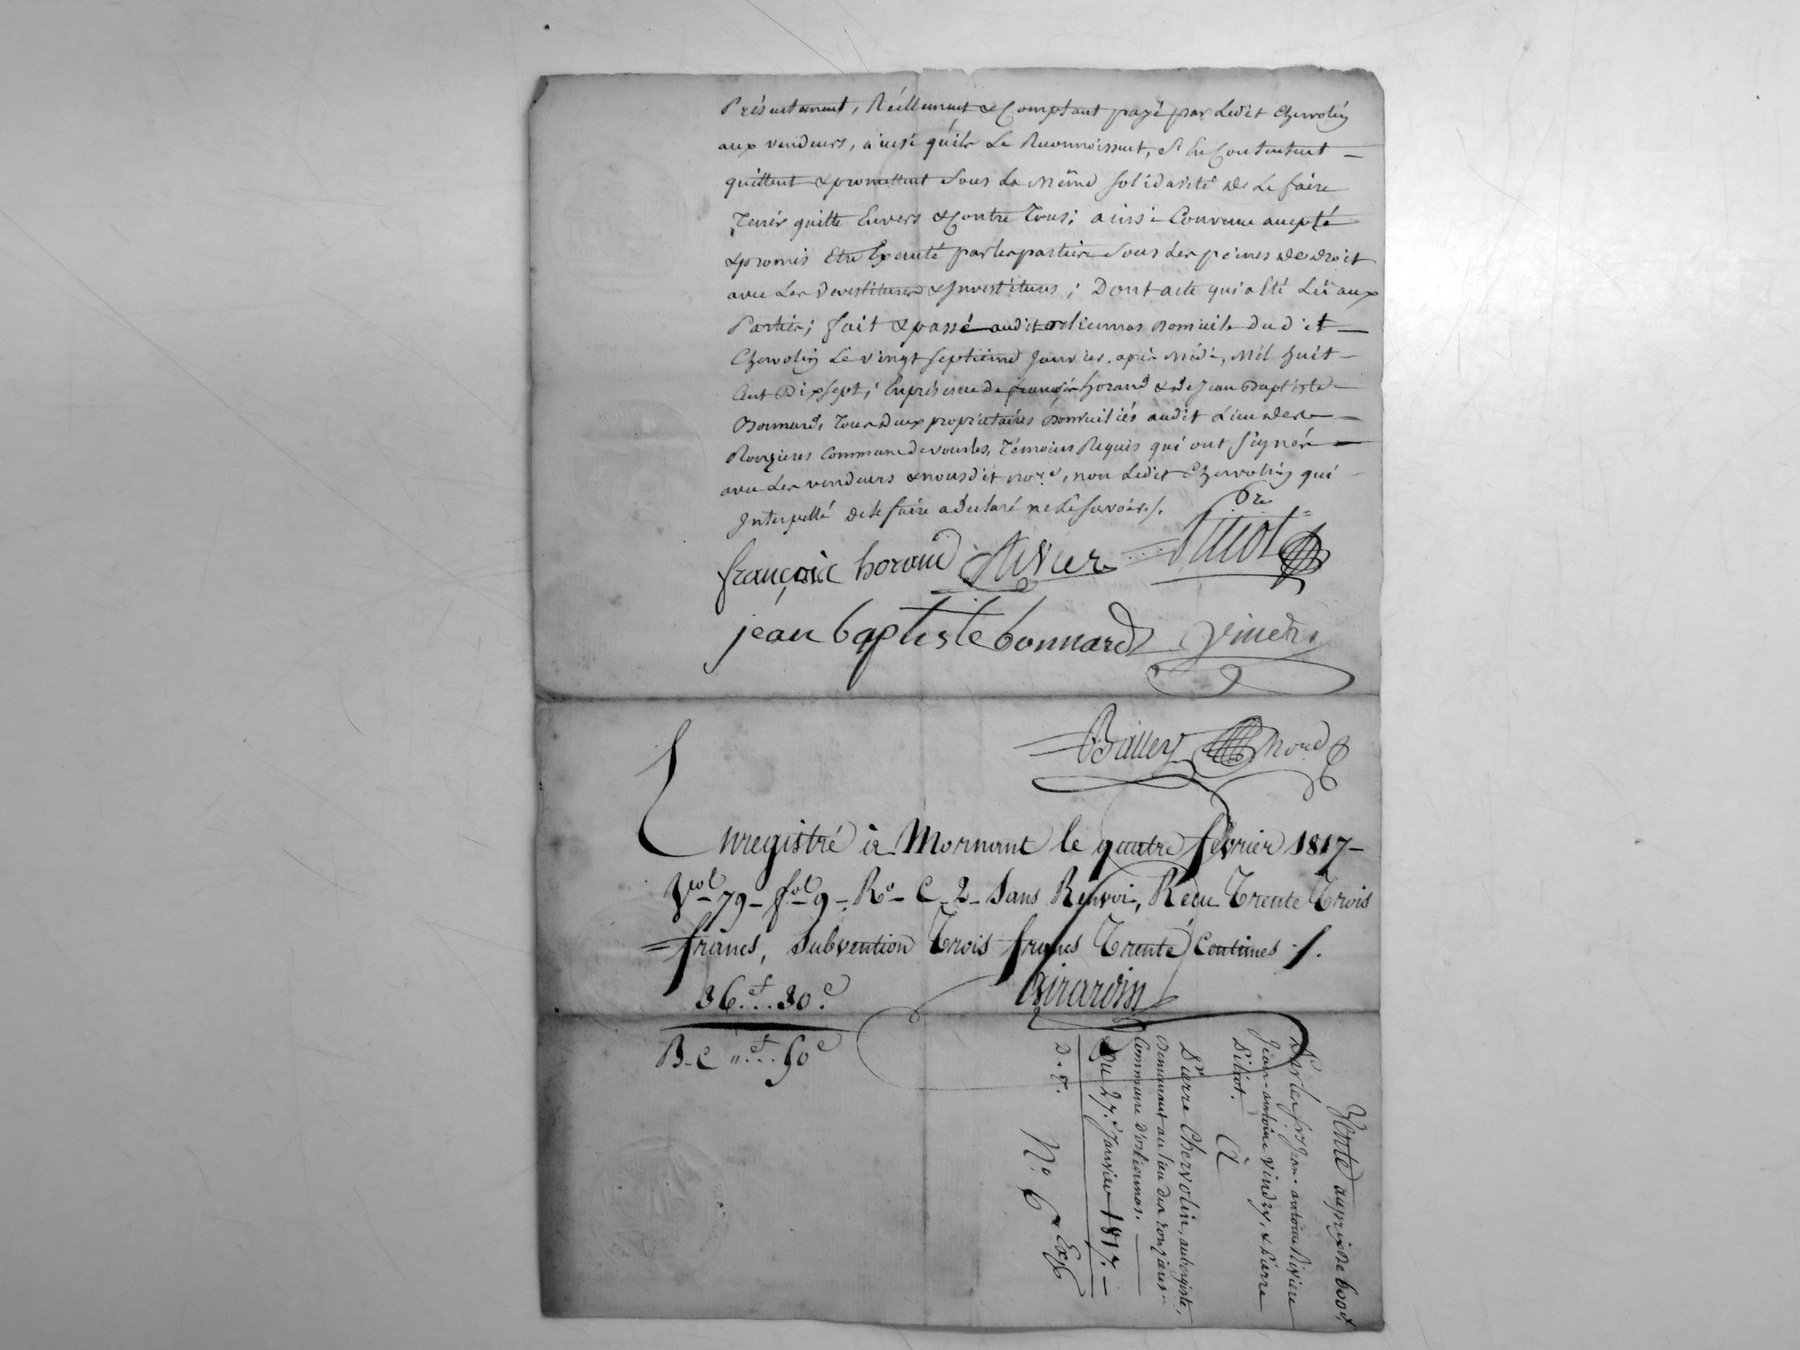 Présentement, Réellement & Comptant payé par Ledit Chervolin
aux vendeurs, ainsi qu'ils Le Reconnoissent, S'en Contentent
quittent & promettent sous La même solidarité de Le faire
Tenir quitte Envers & Contre Tous; ainsi Convenu accepté
& promis Etre Executé par les parties sous Les peines de droit
avec Les devestitures & Investitures; Dont acte qui a été Lû aux
Parties; fait & passé audit orliennas domicile dudit
Chervolin Le vingt septieme Janvier, après Midi, Mil huit
Cent Dix sept; En présence de françois horand & de Jean Baptiste
Bonnard, Tous deux propriétaires domiciliés audit Lieu des
Ronzieres Commune de vourles, Témoins Requis qui ont signés
avec Les vendeurs & nousdit no.re, non Ledit Chervolin qui
Interpellé de le faire a déclaré ne Le savoir./.
françois horand Rivier Pre Piliot
jean baptiste bonnard Vindry
Balley No.re
Enregistré à Mornant le quatre février 1817
Vol 79 fol 9 Ro C. 2 Sans Renvoi, Recu Trente Trois
francs, Subvention Trois francs Trente Centimes
36.f 30.c
Girardin
B.C "f 50c
Vente au prix de 600f
Par Les srs Jean-antoine Rivière
Jean-antoine Vindry, & Pierre
Piliot.
à
Pierre Chervolin, aubergiste,
demeurant au Lieu des ronzieres
Commune d'orliennas.
Du 27.e Janvier 1817.
No. 6